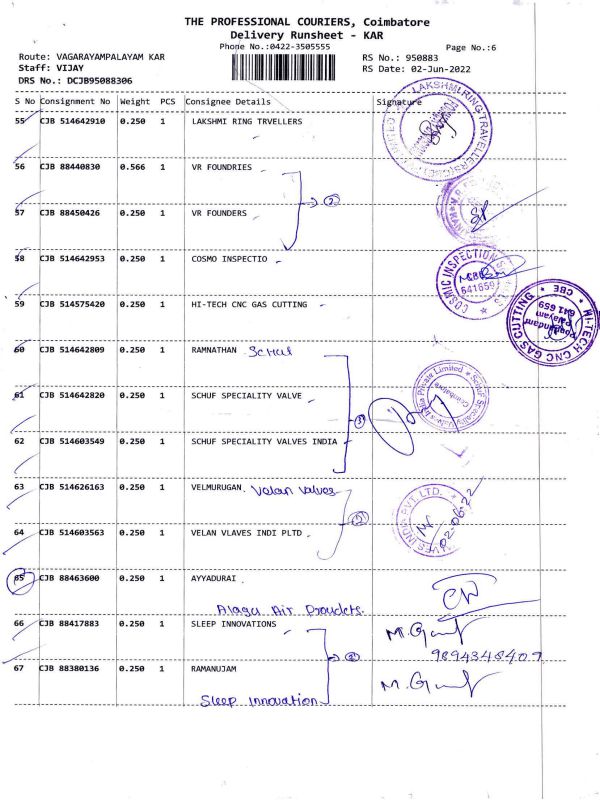 THE PROFESSIONAL COURIERS, Coimbatore
Delivery Runsheet - KAR
Phone No.:0422-3505555
Page No.:6
Route: VAGARAYAMPALAYAM KAR
RS No.: 950883
Staff: VIJAY
RS Date: 02-Jun-2022
DRS No.: DCJB95088306
S No Consignment No Weight PCS Consignee Details Signature
55 CJB 514642910 0.250 1 LAKSHMI RING TRVELLERS
LAKSHMI RING TRAVELLERS
56 CJB 88440830 0.566 1 VR FOUNDRIES
2
57 CJB 88450426 0.250 1 VR FOUNDERS
58 CJB 514642953 0.250 1 COSMO INSPECTIO
COSMIC INSPECTION
641659
59 CJB 514575420 0.250 1 HI-TECH CNC GAS CUTTING
HI-TECH CNC GAS CUTTING
CBE
641 659
60 CJB 514642809 0.250 1 RAMNATHAN
61 CJB 514642820 0.250 1 SCHUF SPECIALITY VALVE
Coimbatore
3
62 CJB 514603549 0.250 1 SCHUF SPECIALITY VALVES INDIA
63 CJB 514626163 0.250 1 VELMURUGAN. Velan Valves
02-06-22
64 CJB 514603563 0.250 1 VELAN VLAVES INDI PLTD
65 CJB 88463600 0.250 1 AYYADURAI
Alagu Air Proudcts.
66 CJB 88417883 0.250 1 SLEEP INNOVATIONS
67 CJB 88380136 0.250 1 RAMANUJAM
Sleep Innovation